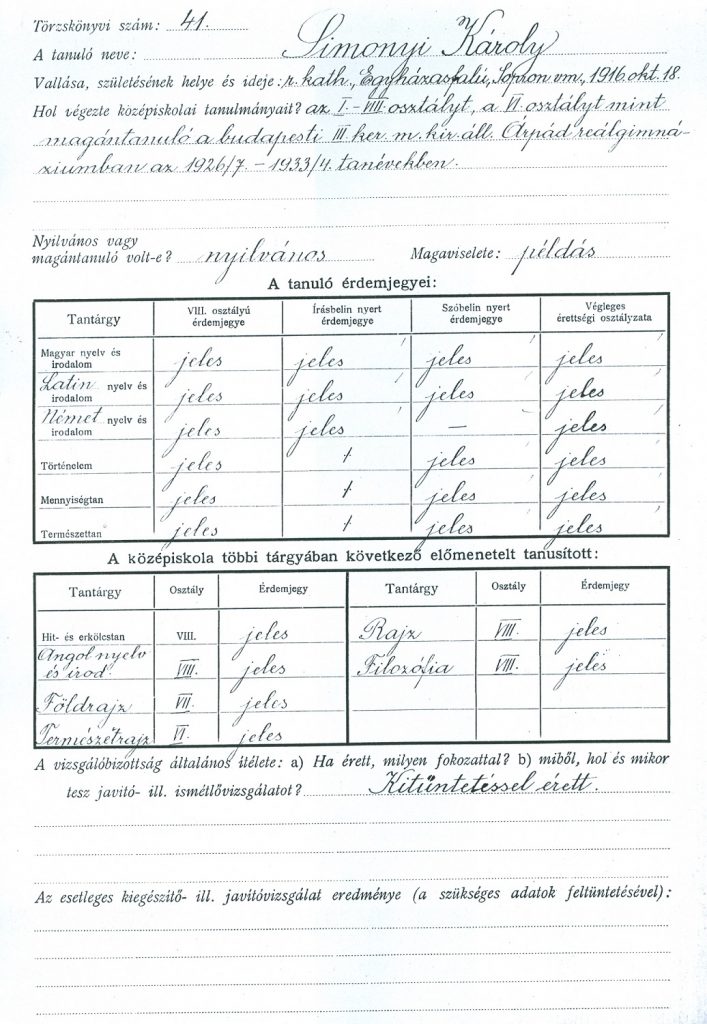 Törzskönyvi szám: 41.
A tanuló neve: Simonyi Károly
Vallása, születésének helye és ideje: r. kath., Egyházasfalu, Sopron vm., 1916. okt. 18.
Hol végezte középiskolai tanulmányait? az I.-VIII. osztályt, a VI. osztályt mint
magántanuló a budapesti III. ker. m. kir. áll. Árpád reálgimná-
ziumban az 1926/7. - 1933/4. tanévekben.
Nyilvános vagy
magántanuló volt-e? nyilvános Magaviselete: példás
A tanuló érdemjegyei:
Tantárgy VIII. osztályú érdemjegye Írásbelin nyert érdemjegye Szóbelin nyert érdemjegye Végleges érettségi osztályzata
Magyar nyelv és irodalom jeles jeles jeles jeles
Latin nyelv és irodalom jeles jeles jeles jeles
Német nyelv és irodalom jeles jeles — jeles
Történelem jeles + jeles jeles
Mennyiségtan jeles + jeles jeles
Természettan jeles + jeles jeles
A középiskola többi tárgyában következő előmenetelt tanusított:
Tantárgy Osztály Érdemjegy Tantárgy Osztály Érdemjegy
Hit- és erkölcstan VIII. jeles Rajz VIII. jeles
Angol nyelv és irod. VIII. jeles Filozófia VIII. jeles
Földrajz VII. jeles
Természetrajz VI. jeles
A vizsgálóbizottság általános ítélete: a) Ha érett, milyen fokozattal? b) miből, hol és mikor
tesz javitó- ill. ismétlővizsgálatot? Kitüntetéssel érett.
Az esetleges kiegészítő- ill. javítóvizsgálat eredménye (a szükséges adatok feltüntetésével):